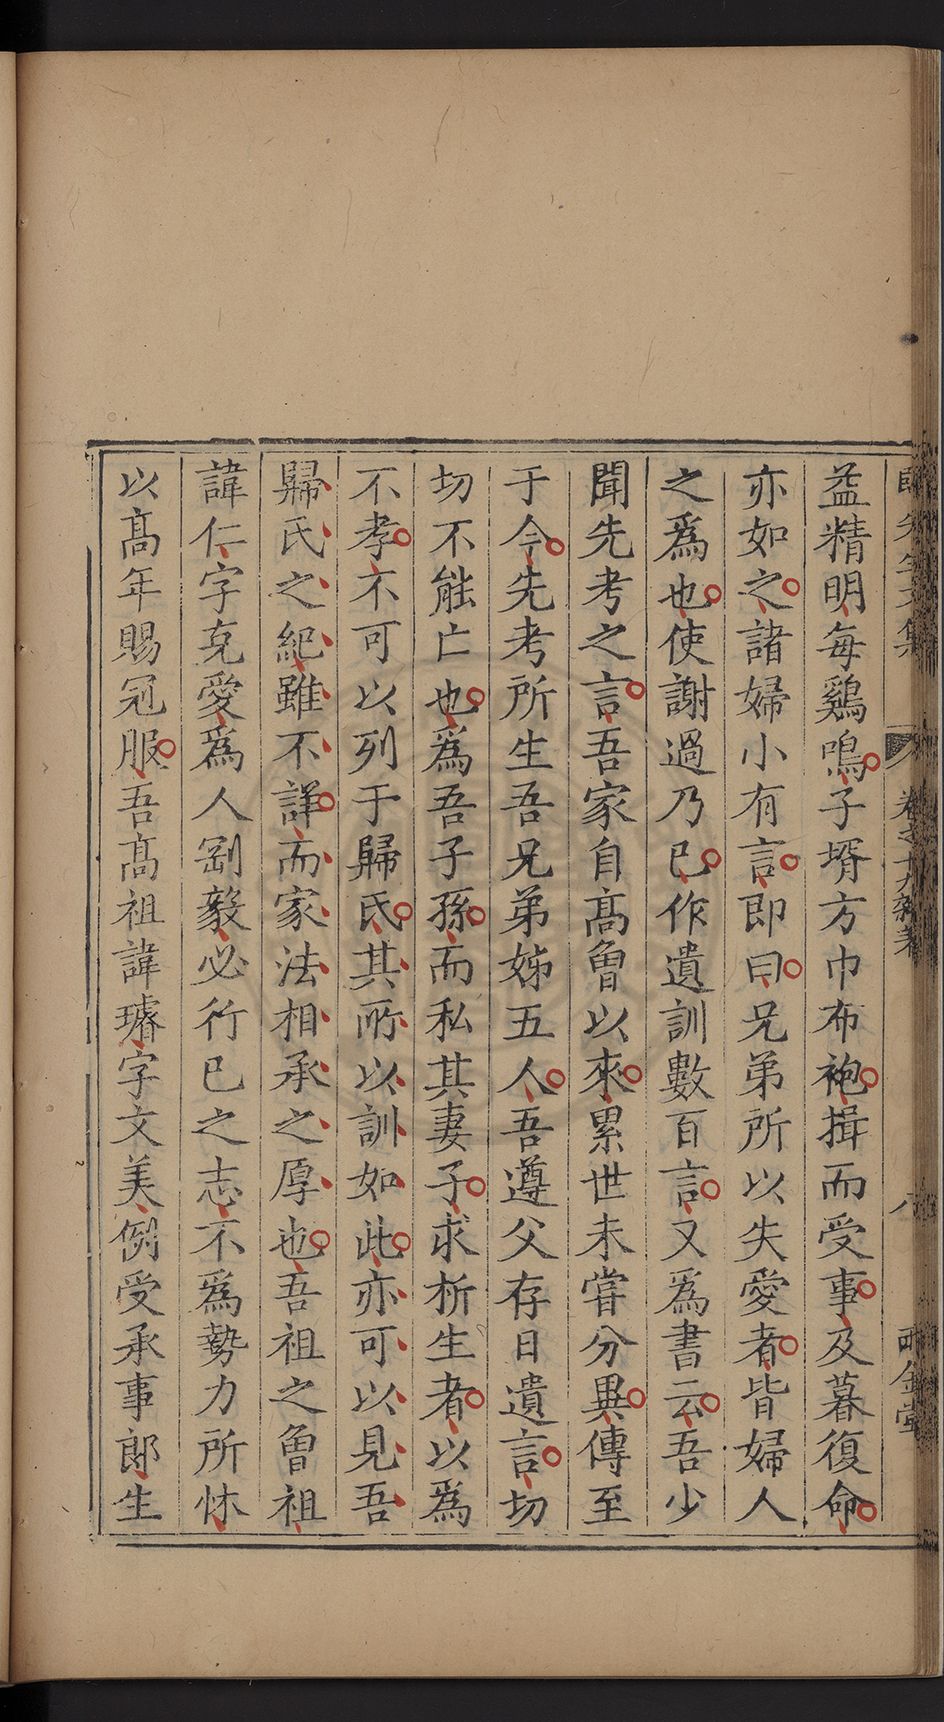 益精明每鷄鳴子壻方巾布袍揖而受事及暮復命
亦如之諸婦小有言即曰兄弟所以失愛者皆婦人
之爲也使謝過乃已作遺訓數百言又爲書云吾少
聞先考之言吾家自髙曾以來累世未嘗分異傳至
于今先考所生吾兄弟姊五人吾遵父存日遺言切
切不能亡也爲吾子孫而私其妻子求析生者以爲
不孝不可以列于歸氏其所以訓如此亦可以見吾
歸氏之紀雖不詳而家法相承之厚也吾祖之曾祖
諱仁字克愛爲人剛毅必行已之志不爲勢力所怵
以髙年賜冠服吾髙祖諱璿字文美例受承事郎生